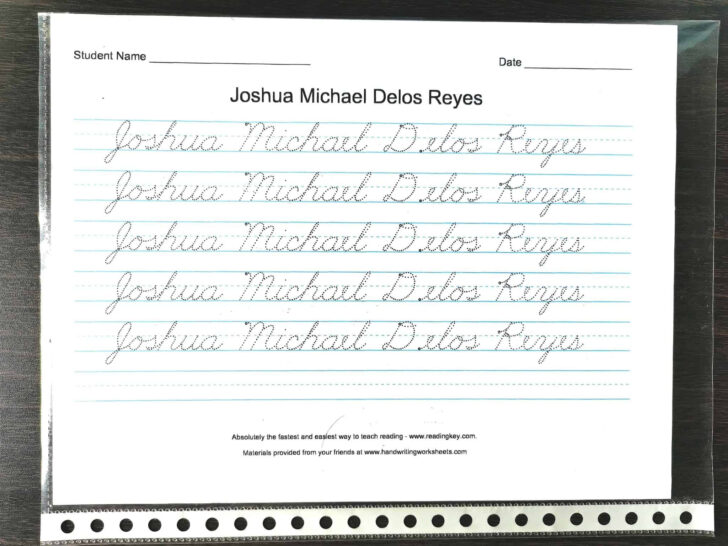 Student Name ____________________ Date ____________________
Joshua Michael Delos Reyes
Joshua Michael Delos Reyes
Joshua Michael Delos Reyes
Joshua Michael Delos Reyes
Joshua Michael Delos Reyes
Joshua Michael Delos Reyes
Absolutely the fastest and easiest way to teach reading - www.readingkey.com.
Materials provided from your friends at www.handwritingworksheets.com